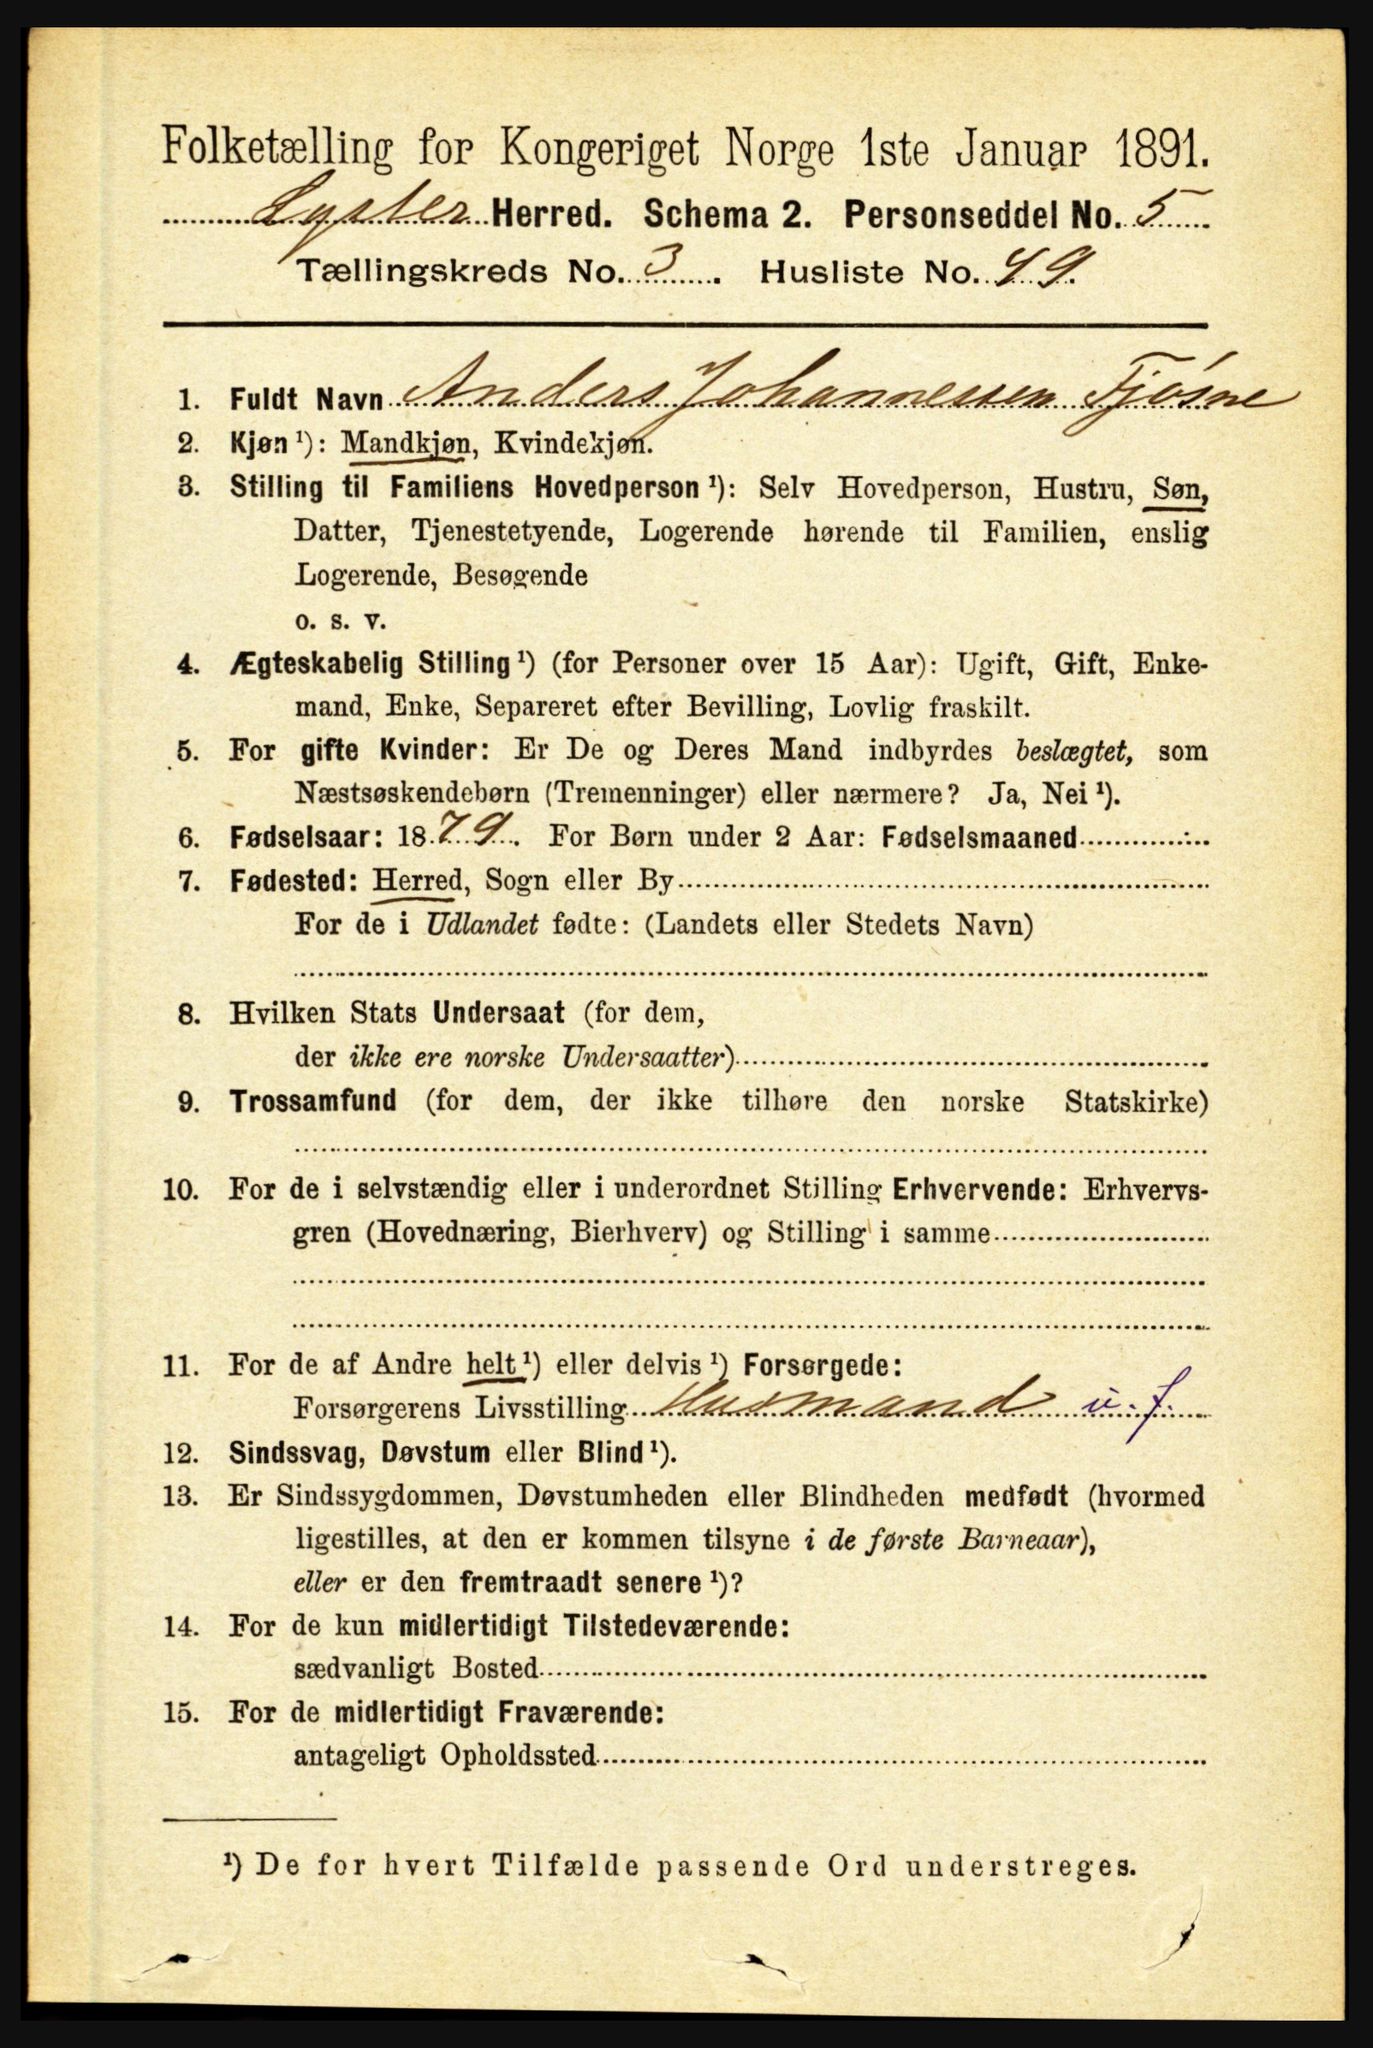 Folketælling for Kongeriget Norge 1ste Januar 1891.
Lyster Herred. Schema 2. Personseddel No. 5
Tællingskreds No. 3. Husliste No. 49.
1. Fuldt Navn Anders Johannessen Fjøsne
2. Kjøn ¹): Mandkjøn, Kvindekjøn.
3. Stilling til Familiens Hovedperson ¹): Selv Hovedperson, Hustru, Søn,
Datter, Tjenestetyende, Logerende hørende til Familien, enslig
Logerende, Besøgende
o. s. v.
4. Ægteskabelig Stilling ¹) (for Personer over 15 Aar): Ugift, Gift, Enke-
mand, Enke, Separeret efter Bevilling, Lovlig fraskilt.
5. For gifte Kvinder: Er De og Deres Mand indbyrdes beslægtet, som
Næstsøskendebørn (Tremenninger) eller nærmere? Ja, Nei ¹).
6. Fødselsaar: 1879. For Børn under 2 Aar: Fødselsmaaned
7. Fødested: Herred, Sogn eller By
For de i Udlandet fødte: (Landets eller Stedets Navn)
8. Hvilken Stats Undersaat (for dem,
der ikke ere norske Undersaatter)
9. Trossamfund (for dem, der ikke tilhøre den norske Statskirke)
10. For de i selvstændig eller i underordnet Stilling Erhvervende: Erhvervs-
gren (Hovednæring, Bierhverv) og Stilling i samme
11. For de af Andre helt ¹) eller delvis ¹) Forsørgede:
Forsørgerens Livsstilling Husmand u. f.
12. Sindssvag, Døvstum eller Blind ¹).
13. Er Sindssygdommen, Døvstumheden eller Blindheden medfødt (hvormed
ligestilles, at den er kommen tilsyne i de første Barneaar),
eller er den fremtraadt senere ¹)?
14. For de kun midlertidigt Tilstedeværende:
sædvanligt Bosted
15. For de midlertidigt Fraværende:
antageligt Opholdssted
¹) De for hvert Tilfælde passende Ord understreges.